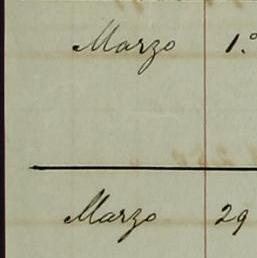 Marzo 1.º
Marzo 29